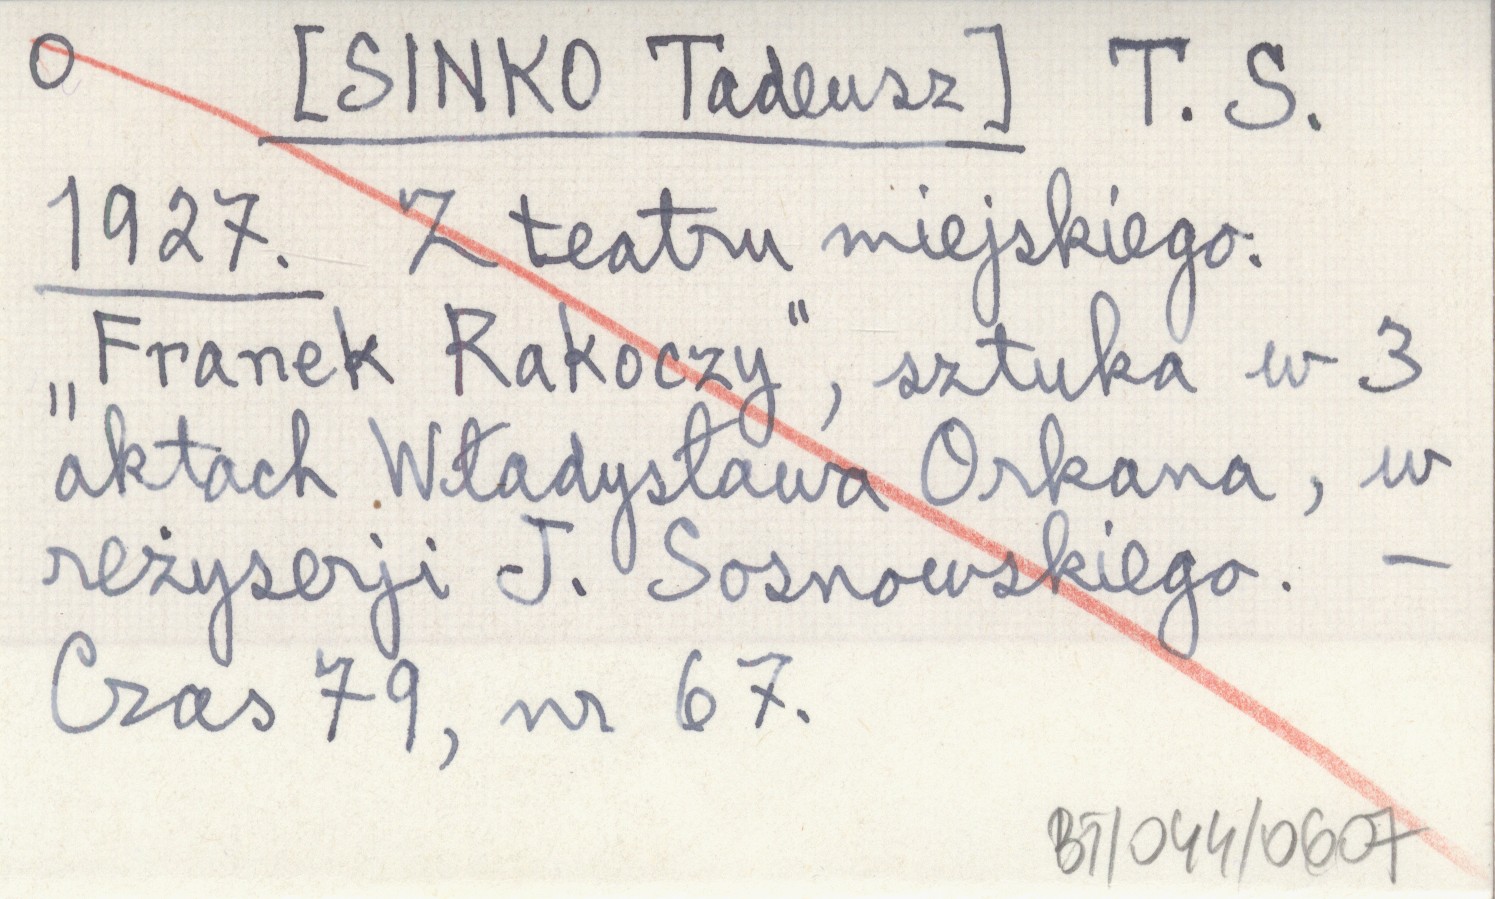 O [SINKO Tadeusz] T. S.
1927. Z teatru miejskiego:
„Franek Rakoczy", sztuka w 3
aktach Władysława Orkana, w
reżyserji J. Sosnowskiego. —
Czas 79, nr 67.
BT/044/0607